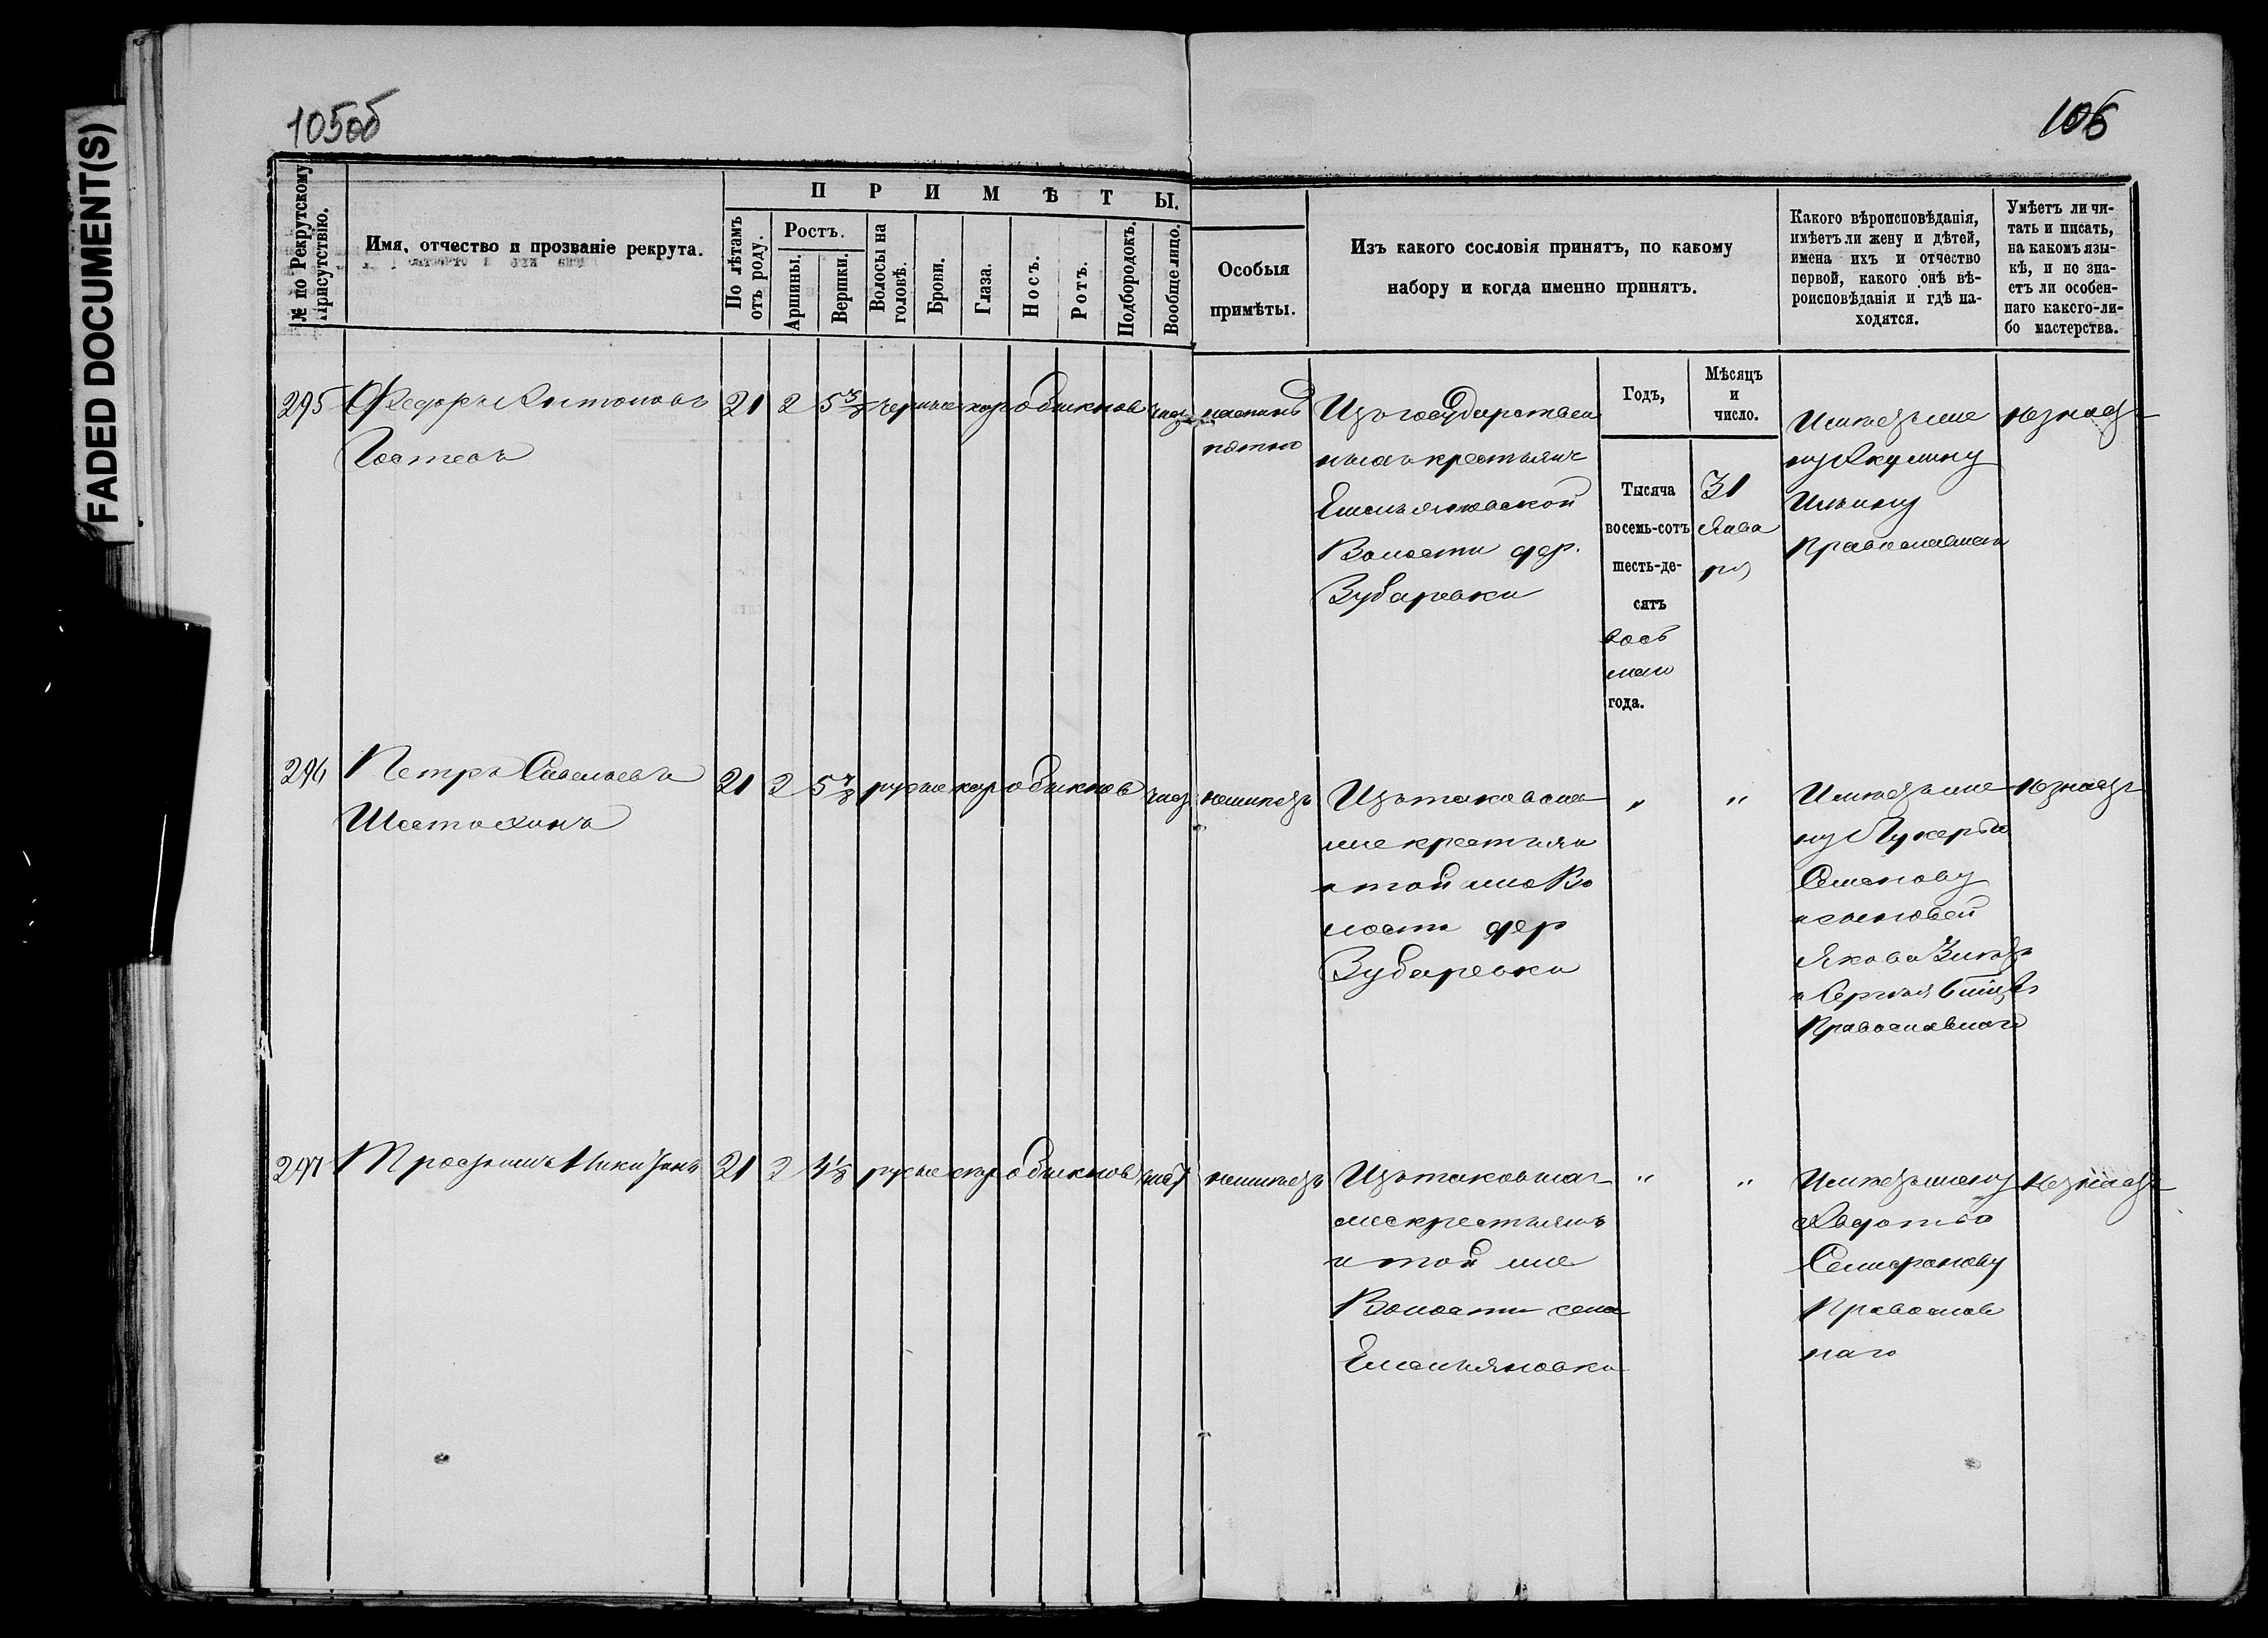 FADED DOCUMENT(S)
105об
106
№ по Рекрутскому Присутствію.
Имя, отчество и прозваніе рекрута.
ПРИМѢТЫ.
По лѣтамъ отъ роду.
Ростъ.
Аршины.
Вершки.
Волосы на головѣ.
Брови.
Глаза.
Носъ.
Ротъ.
Подбородокъ.
Вообще лицо.
Особыя
примѣты.
Изъ какого сословія принятъ, по какому
набору и когда именно принятъ.
Какого вѣроисповѣданія,
имѣетъ ли жену и дѣтей,
имена ихъ и отчество
первой, какого онѣ вѣ-
роисповѣданія и гдѣ на-
ходятся.
Умѣетъ ли чи-
тать и писать,
на какомъ язы-
кѣ, и не зна-
етъ ли особен-
наго какого-ли-
бо мастерства.
Годъ,
Мѣсяцъ
и
число.
295 Федоръ Антоновъ 21 2 5 3/8 черные кар обыкнов
Гостевъ
Изъ государствен
ныхъ крестьянъ
Емельяновской
Волости дер.
Зубаревки
Тысяча
восемь-сотъ
шесть-де-
сятъ
вось
маго
года.
31
Янва
ря
Имѣетъ же
ну Акулину
Ильину
Православнаго
незнаетъ
296 Петръ Савельевъ 21 2 5 7/8 русые кар обыкнов чист неимѣетъ
Шестохинъ
Изъ таковыхъ
же крестьянъ
и той же Во
лости дер
Зубаревки
" "
Имѣетъ же
ну Лукерью
Семенову
и сыновей
Якова 3 лѣтъ
и Сергѣя 6 мѣс
Православнаго
незнаетъ
297 Трофимъ Никитинъ 21 2 4 1/8 русые сѣр обыкнов неимѣетъ
Изъ таковыхъ
же крестьянъ
и той же
Волости села
Емельяновки
" "
Имѣетъ жену
Авдотью
Православ
наго
незнаетъ